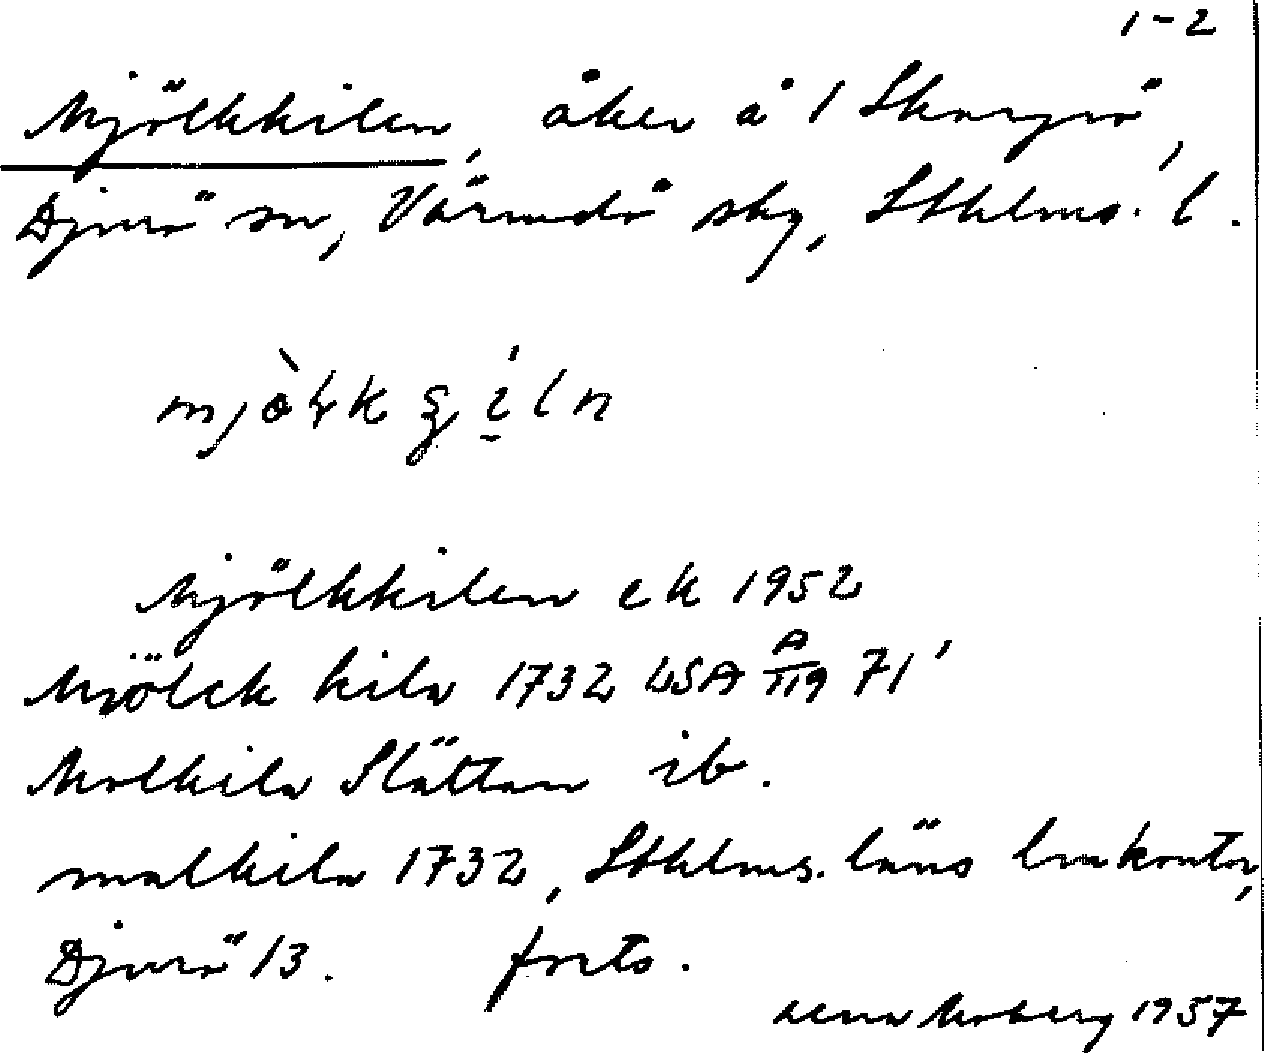 1-2
Mjölkkilen, åker å 1 Skarprö,
Djurö sn, Värmdö skg, Sthlms. l.
Mjölkkilen ek 1952
Mjölck kila 1732 LSA A/119 71'
Molkila Slättan ib.
malkila 1732, Sthlms. läns lmkontor,
Djurö 13. forts.
Lena Moberg 1957